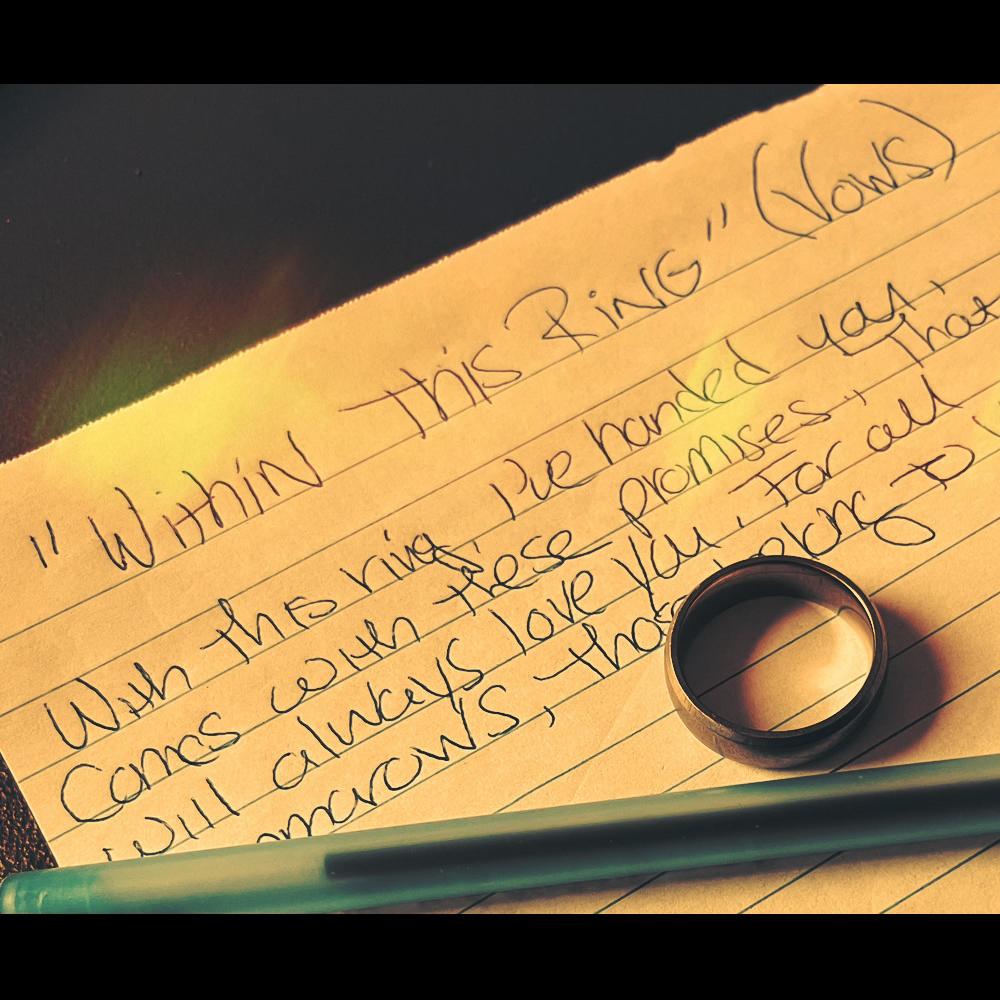 "Within This Ring" (Vows)
With this ring, I've handed you,
Comes with these promises. That
will always love you. For all
tomorrows, those belong to